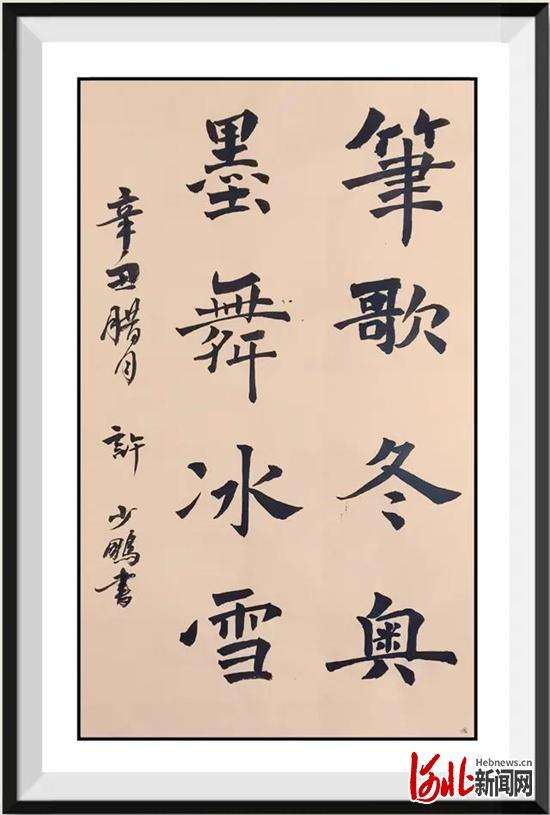 筆歌冬奥
墨舞冰雪
辛丑腊月 許少鵬書
Hebnews.cn
河北新闻网